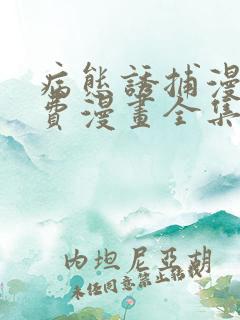 病態誘捕漫
費漫畫全集
內坦尼亞胡
未經同意禁止轉載